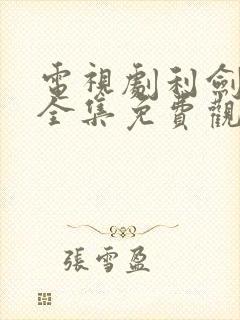 電視劇利劍
全集免費觀
張雪盈